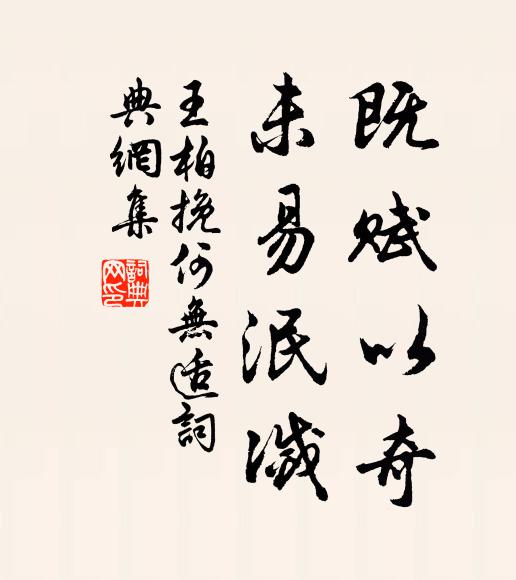 既赋以奇
未易泯滅
王柏挽何無适詞
典網集
詞典網印